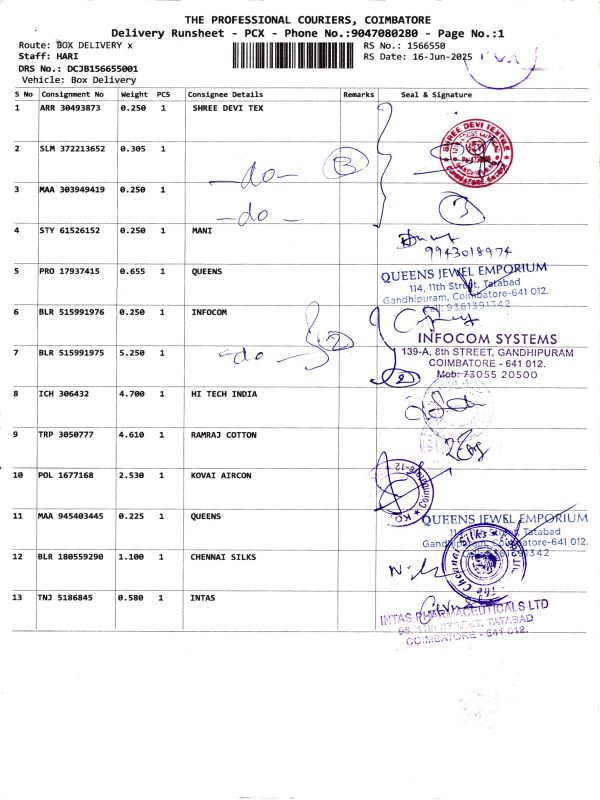 THE PROFESSIONAL COURIERS, COIMBATORE
Delivery Runsheet - PCX - Phone No.:9047080280 - Page No.:1
Route: BOX DELIVERY x RS No.: 1566550
Staff: HARI RS Date: 16-Jun-2025
DRS No.: DCJB156655001
Vehicle: Box Delivery
S No Consignment No Weight PCS Consignee Details Remarks Seal & Signature
1 ARR 30493873 0.250 1 SHREE DEVI TEX
SHREE DEVI TEXTILE
COIMBATORE
2 SLM 372213652 0.305 1
-do- 3
3 MAA 303949419 0.250 1
-do- 3
4 STY 61526152 0.250 1 MANI
9943018974
5 PRO 17937415 0.655 1 QUEENS
QUEENS JEWEL EMPORIUM
114, 11th Street, Tatabad
Gandhipuram, Coimbatore-641 012.
Cell: 9361391342
6 BLR 515991976 0.250 1 INFOCOM
INFOCOM SYSTEMS
7 BLR 515991975 5.250 1 -do- 2
139-A, 8th STREET, GANDHIPURAM
COIMBATORE - 641 012.
Mob: 73055 20500
2
8 ICH 306432 4.700 1 HI TECH INDIA
9 TRP 3050777 4.610 1 RAMRAJ COTTON
10 POL 1677168 2.530 1 KOVAI AIRCON
11 MAA 945403445 0.225 1 QUEENS
QUEENS JEWEL EMPORIUM
11th Street, Tatabad
Gandhipuram, Coimbatore-641 012.
12 BLR 180559290 1.100 1 CHENNAI SILKS
The Chennai Silks
13 TNJ 5186845 0.580 1 INTAS
INTAS PHARMACEUTICALS LTD
11th STREET, TATABAD
COIMBATORE - 641 012.